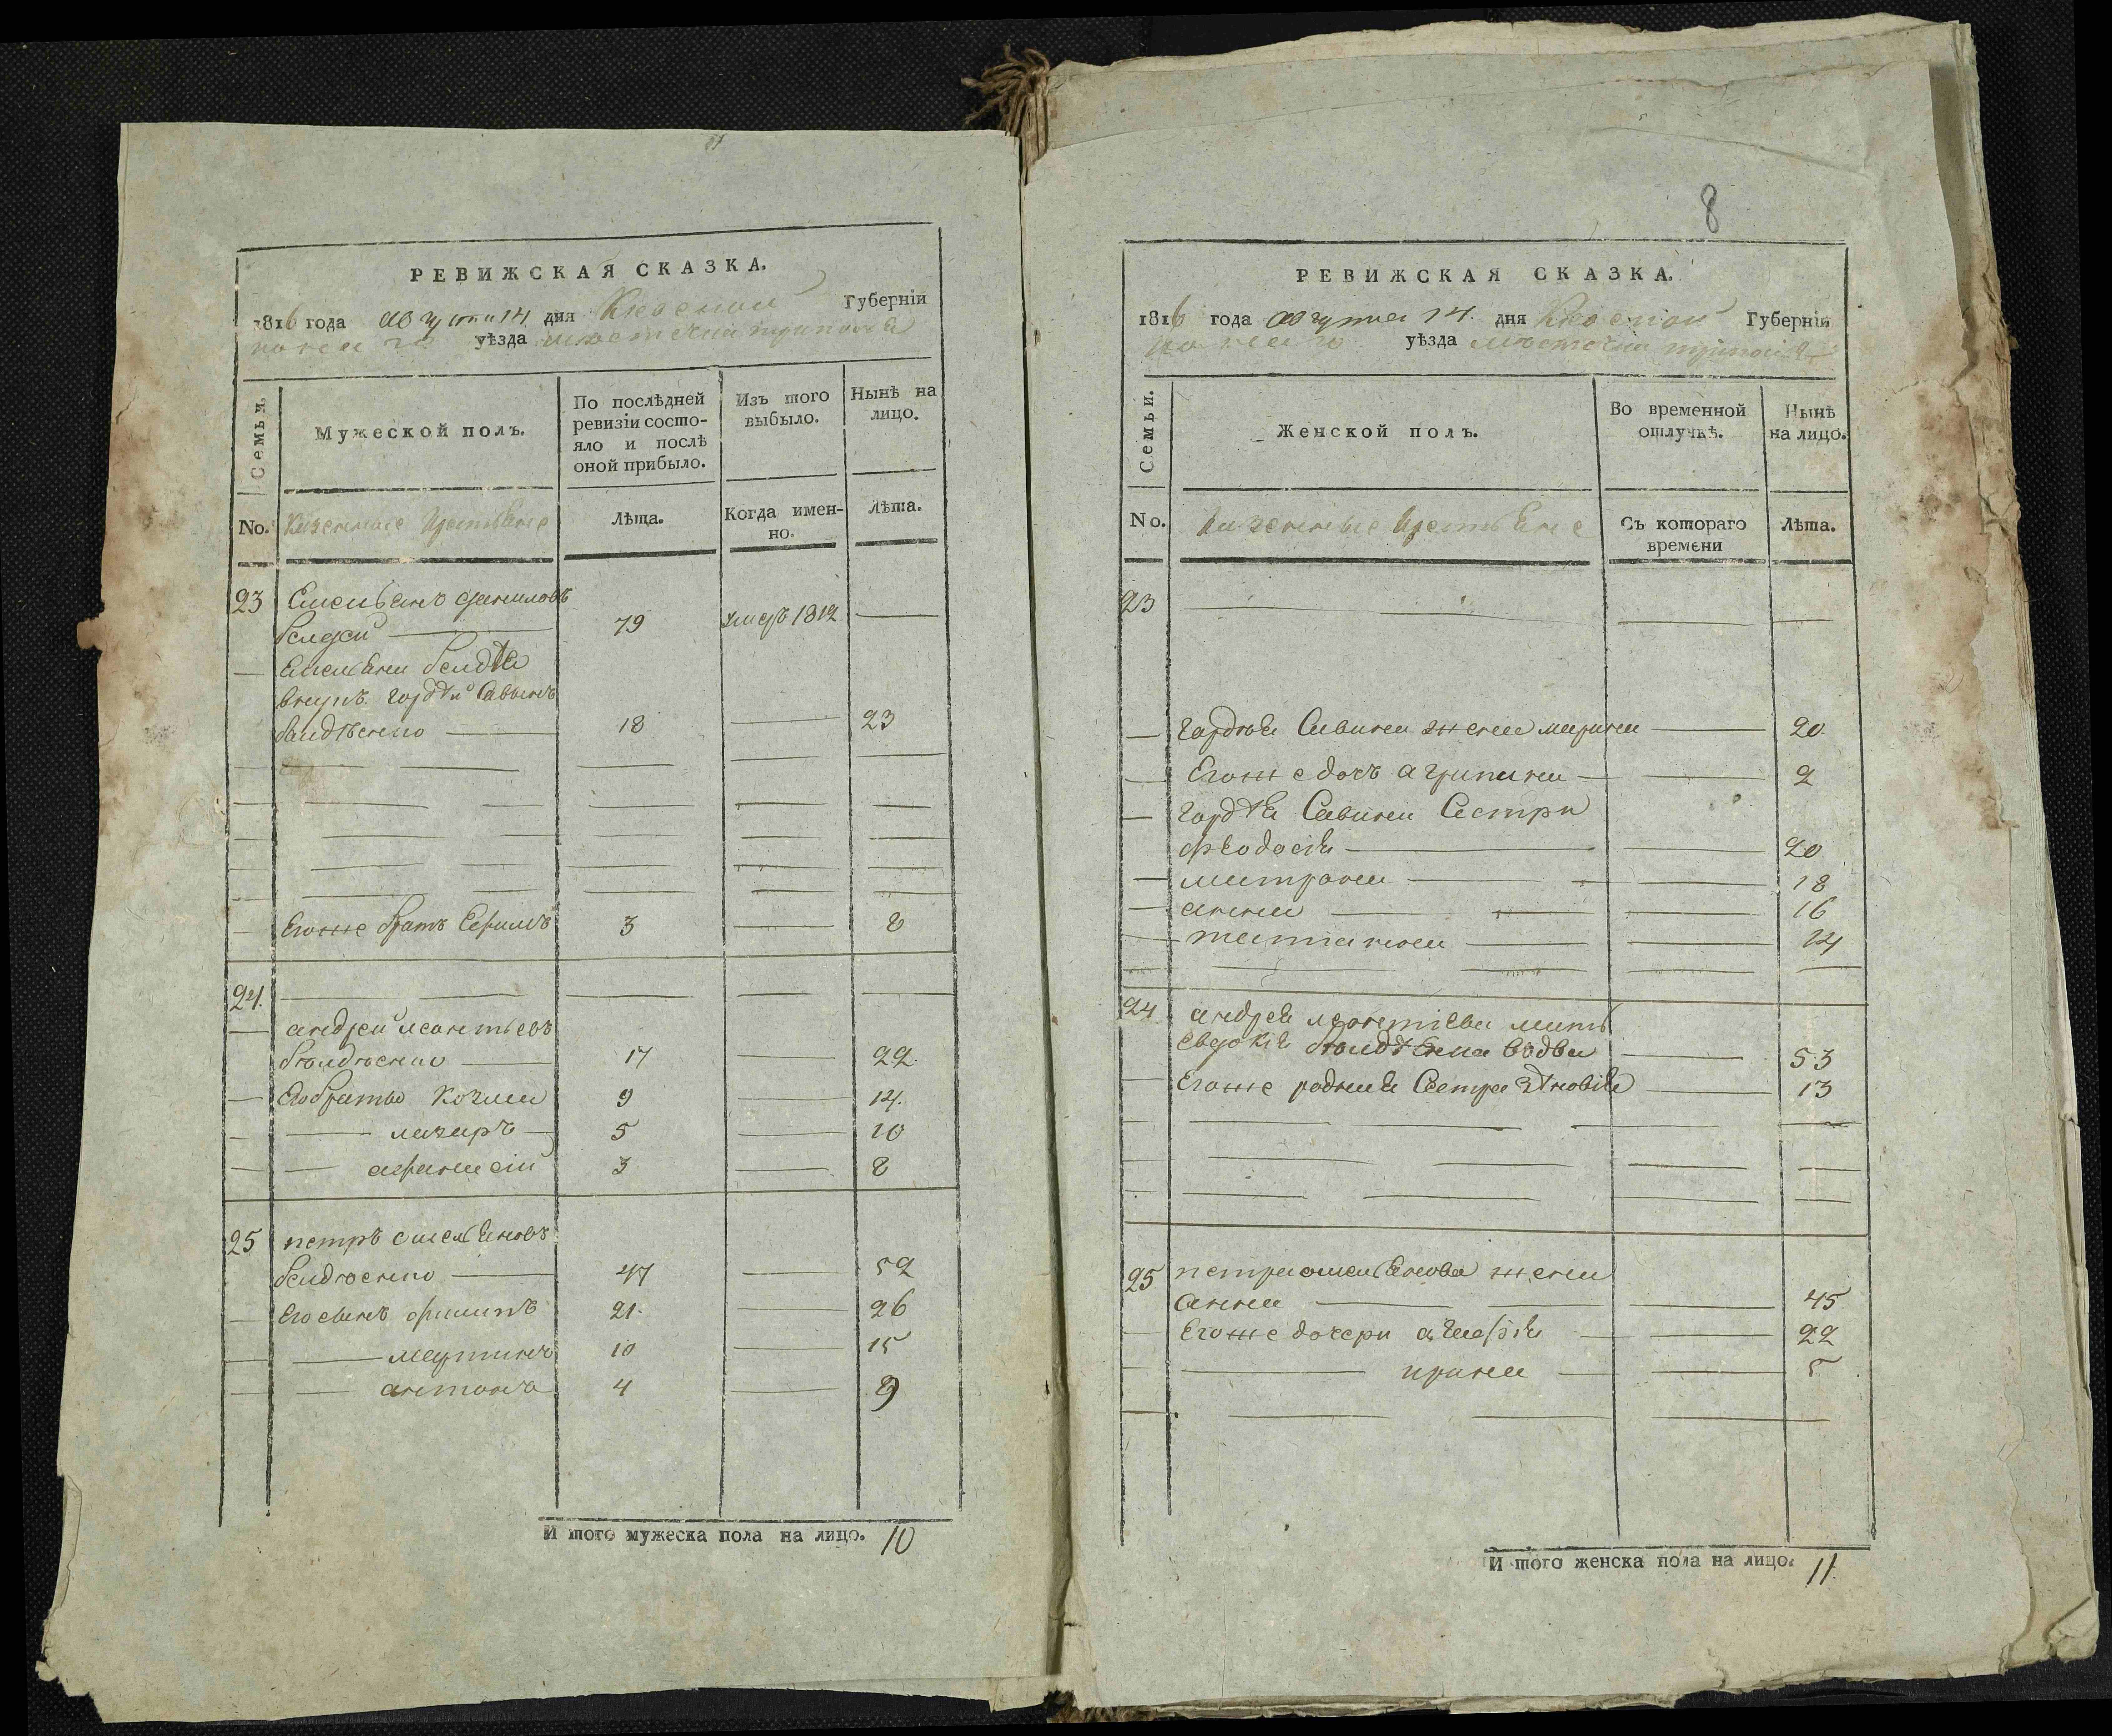 РЕВИЖСКАЯ СКАЗКА.
1816 года августа 14 дня Кіевской Губерніи
уѣзда мѣстечка триполя
Семьи.
Мужеской полъ.
По послѣдней ревизіи состо-яло и послѣ оной прибыло.
Изъ того выбыло.
Нынѣ на лицо.
No.
Казенные Крестьяне
Лѣта.
Когда имен-но.
Лѣта.
23 Емельянъ даниловъ
79 умеръ 1812
Емельяна
внукъ гордѣй Савинъ
18 23
Егоже братъ Ефимъ 3 8
24.
андрей леонтьевъ
17 22.
Егобратья Козма 9 14.
лазарь 5 10
афанасій 3 8
25 петръ омельяновъ
47 52
Его сынъ филипъ 21. 26
мартинъ 10 15
антонъ 4 9
И того мужеска пола на лицо. 10
8
РЕВИЖСКАЯ СКАЗКА.
1816 года августа 14. дня Кіевской Губерніи
уѣзда мѣстечка триполя
Семьи.
Женской полъ.
Во временной отлучкѣ.
Нынѣ на лицо.
No.
Казенные Крестьяне
Съ котораго времени
Лѣта.
23
гордѣя Савина жена марина 20
Егоже дочь агрипина 2
гордѣя Савина Сестри
феодосія 20
матрона 18
анна 16
татіанна 14
24 андрея леонтіева мать
евдокія вдова 53
Егоже родная Сестра Зѣновія 13
25 петра омельянова жена
анна 45
Егоже дочери агафія 22
ирина 5
И того женска пола на лицо. 11.